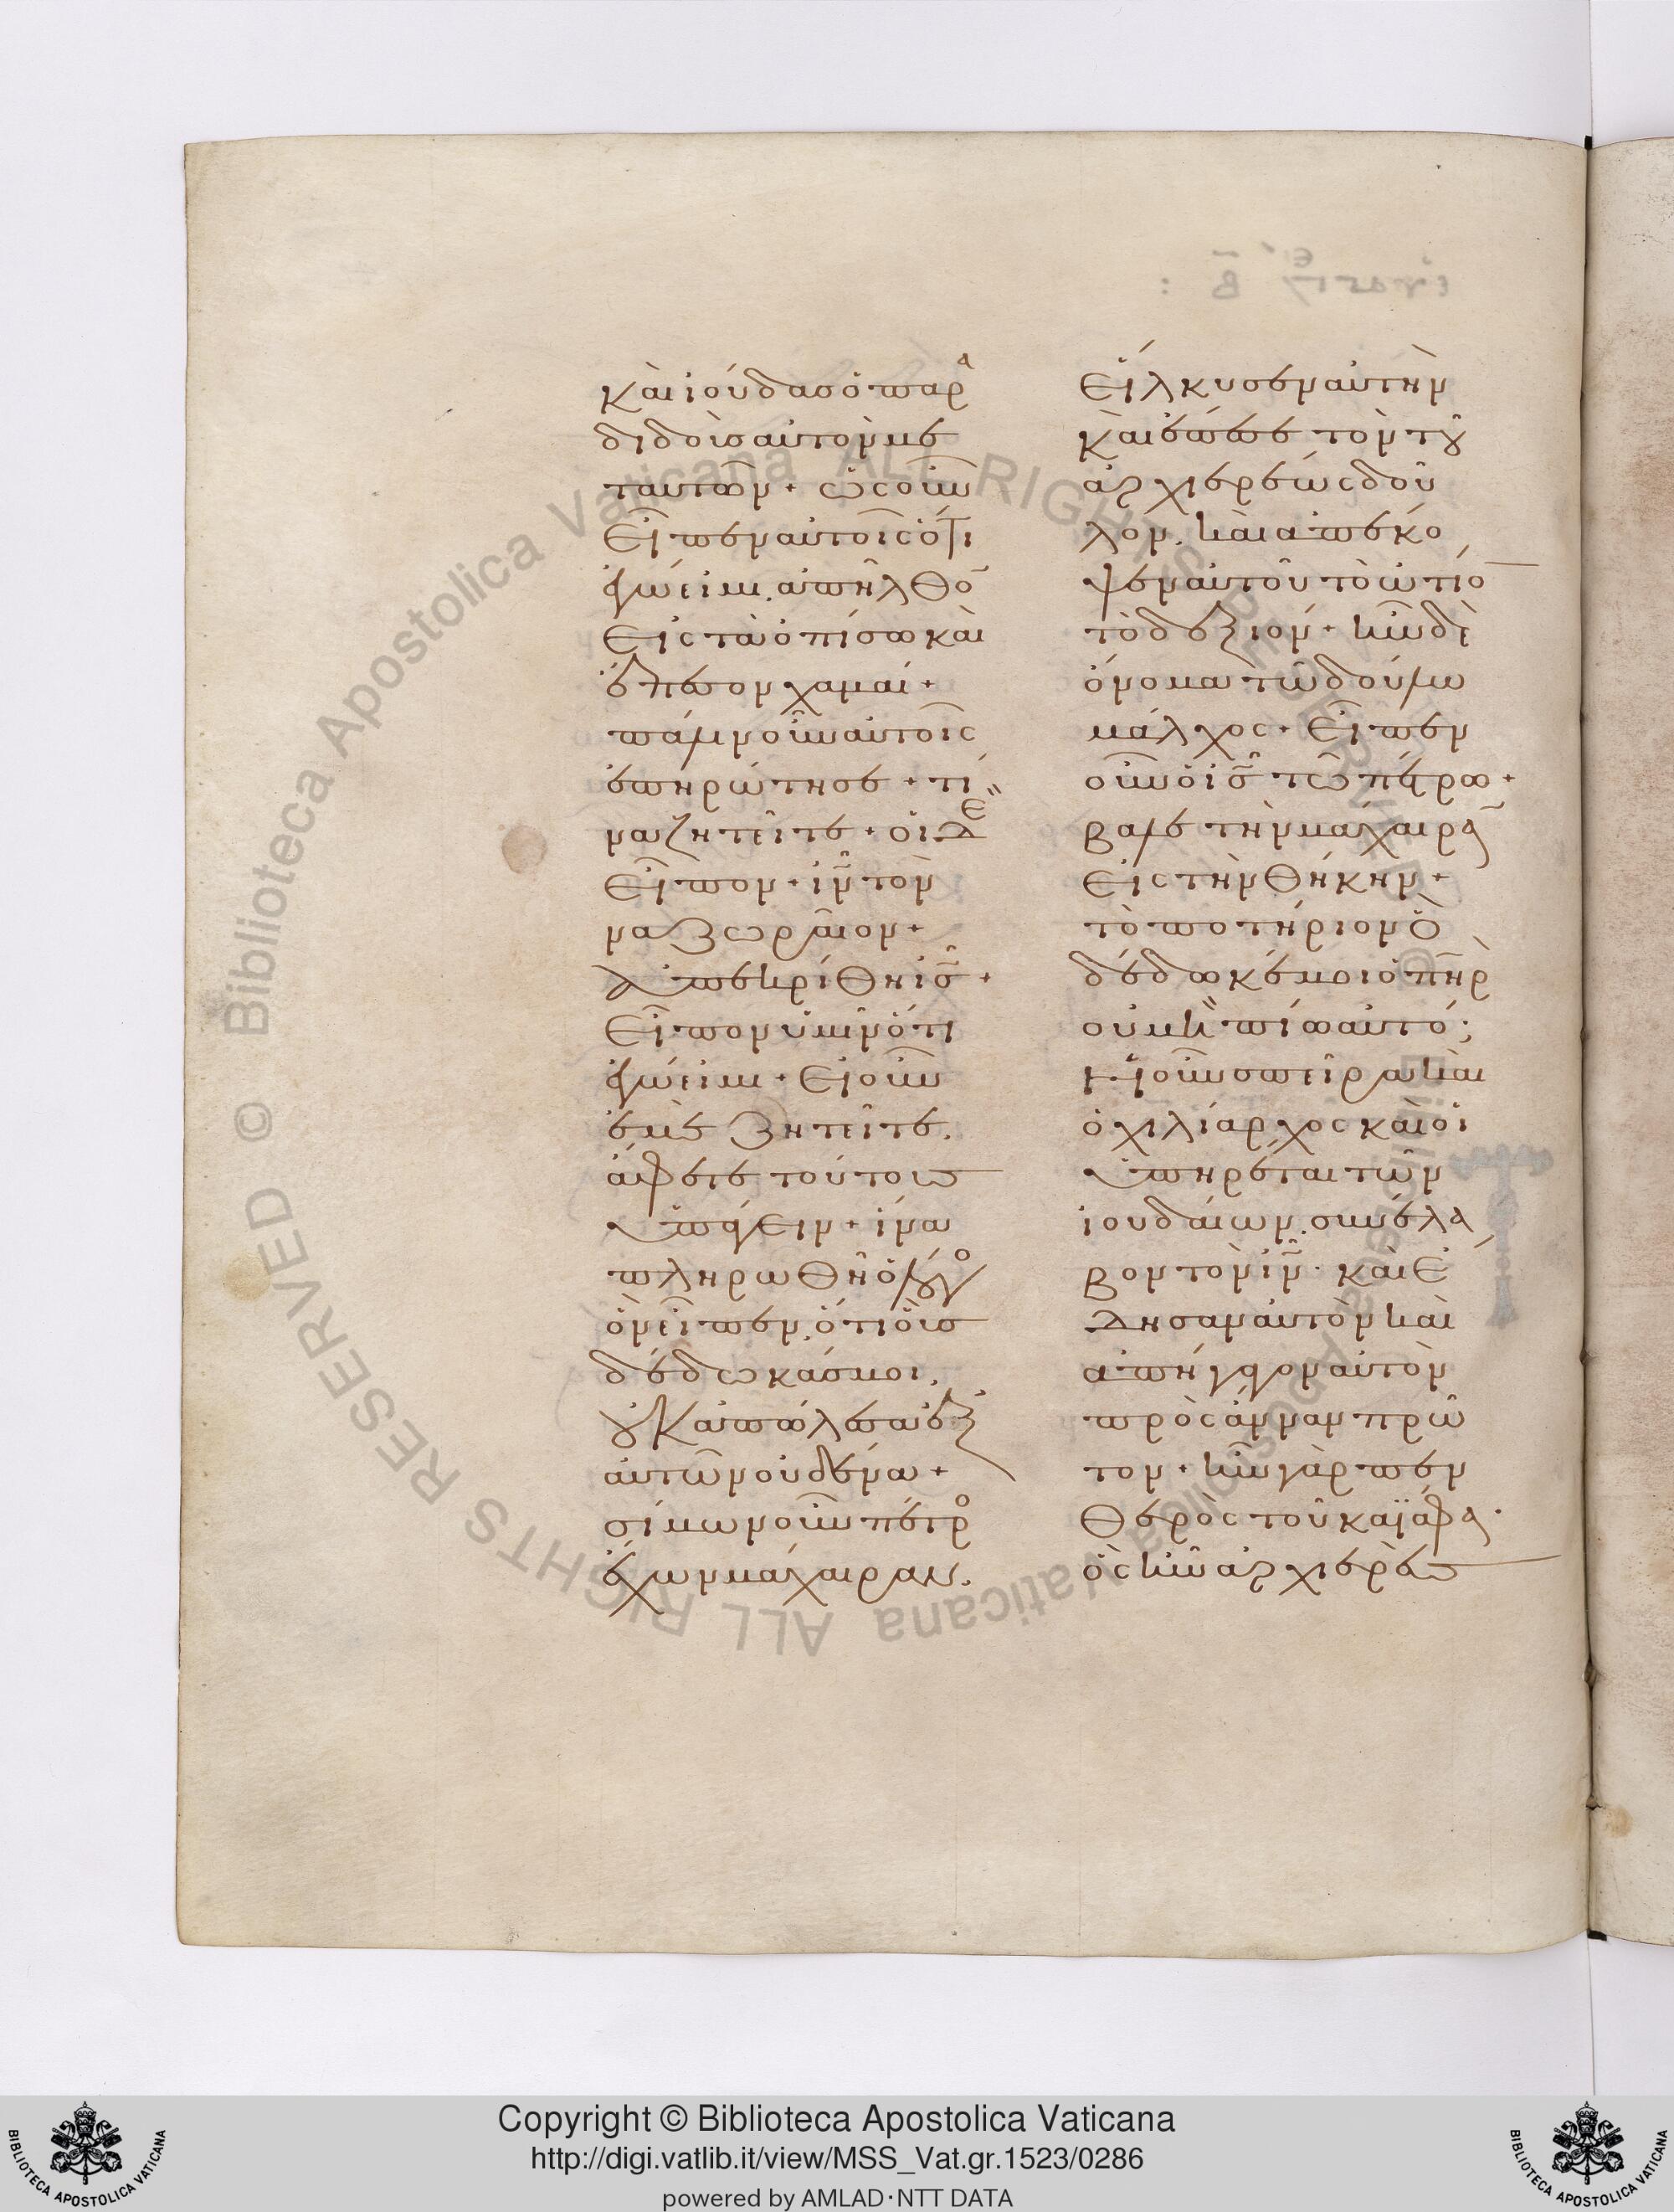 καὶ ἰούδας ὁ παρα
διδοὺς αὐτὸν με
τ αὐτῶν + ὡς οὖν
εἶπεν αὐτοῖς ὅτι
ἐγώ εἰμι. ἀπῆλθο̄
εἰς τὰ ὀπίσω καὶ
ἔπεσον χαμαί +
πάλιν οὖν αὐτοὺς
ἐπηρώτησε + τί
να ζητεῖτε + οἱ δὲ
εἶπον + ἰν̄ τὸν
ναζωραῖον +
ἀπεκρίθη ἰς̄ +
εἶπον ὑμῖν ὅτι
ἐγώ εἰμι + εἰ οὖν
ἐμὲ ζητεῖτε.
ἄφετε τούτους
ὑπάγειν + ἵνα
πληρωθῇ ὁ λόγο
ὃν εἶπεν. ὅτι οὓς
δέδωκάς μοι.
οὐκ ἀπώλεσα ἐξ
αὐτῶν οὐδένα +
σίμων οὖν πέτρο
ἔχων μάχαιραν.
εἵλκυσεν αὐτὴν
καὶ ἔπαισε τὸν τοῦ
ἀρχιερέως δοῦ
λον. καὶ ἀπέκο
ψεν αὐτοῦ τὸ ὠτίο̄
τὸ δεξιόν + ἦν δὲ
ὄνομα τῷ δούλω
μάλχος + εἶπεν
οὖν ὁ ἰς̄ τῷ πέτρω +
βάλε τὴν μάχαιρᾱ
εἰς τὴν θήκην +
τὸ ποτήριον ὃ
δέδωκέ μοι ὁ πη̄ρ
οὐ μὴ πίω αὐτό;
ἡ οὖν σπεῖρα καὶ
ὁ χιλίαρχος καὶ οἱ
ὑπηρέται τῶν
ἰουδαίων. συνέλα
βον τὸν ἰν̄ · καὶ ἔ
δησαν αὐτὸν καὶ
ἀπήγαγον αὐτὸν
πρὸς ἄνναν πρῶ
τον + ἦν γὰρ πεν
θερὸς τοῦ καϊάφα ·
ὃς ἦν ἀρχιερεὺς
Copyright © Biblioteca Apostolica Vaticana
http://digi.vatlib.it/view/MSS_Vat.gr.1523/0286
powered by AMLAD·NTT DATA
BIBLIOTECA APOSTOLICA VATICANA
BIBLIOTECA APOSTOLICA VATICANA
© Biblioteca Apostolica Vaticana ALL RIGHTS RESERVED
© Biblioteca Apostolica Vaticana ALL RIGHTS RESERVED